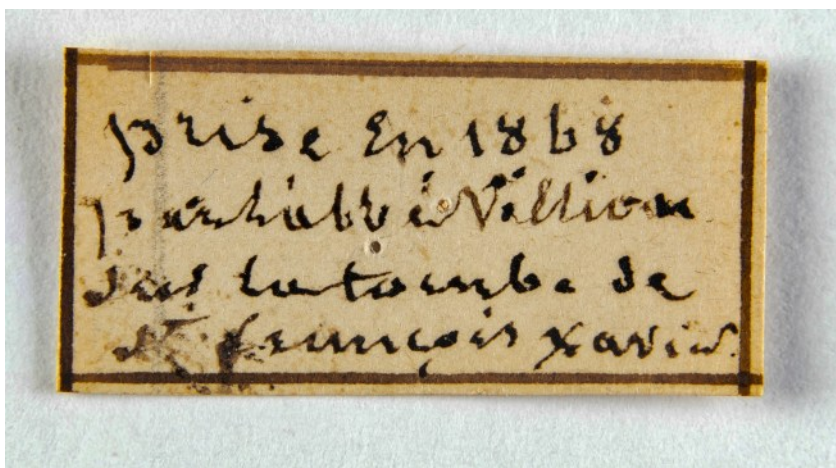 prise en 1868
par l'abbé Villion
sur la tombe de
St. françois Xavier.